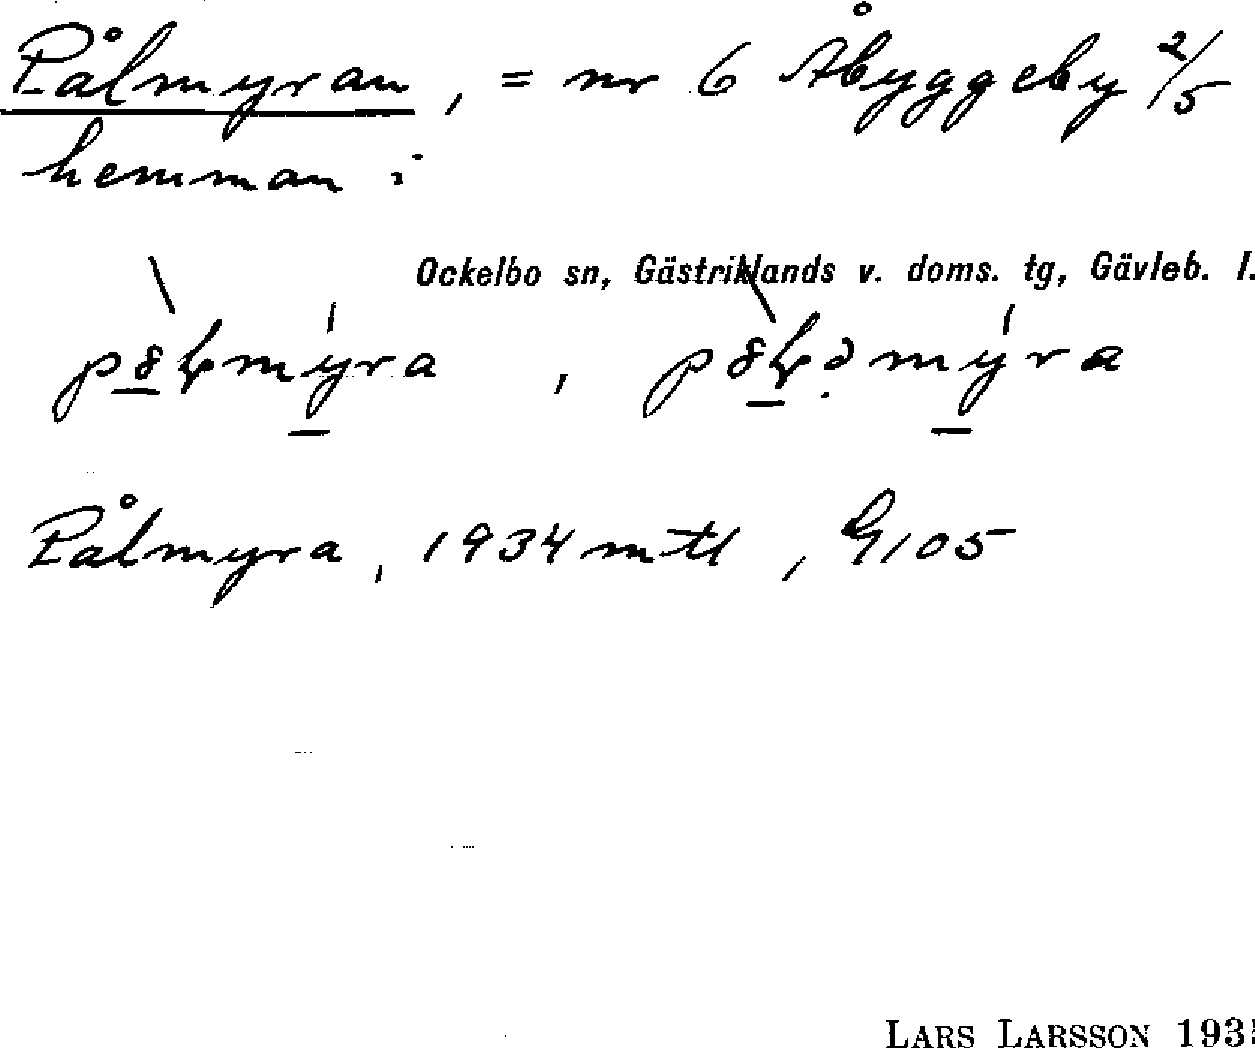 Pålmyran, = nr 6 Åbyggeby 2/5
hemman i
Ockelbo sn, Gästriklands v. doms. tg, Gävleb. l.
Pålmyra, 1934 mtl, G105
LARS LARSSON 193